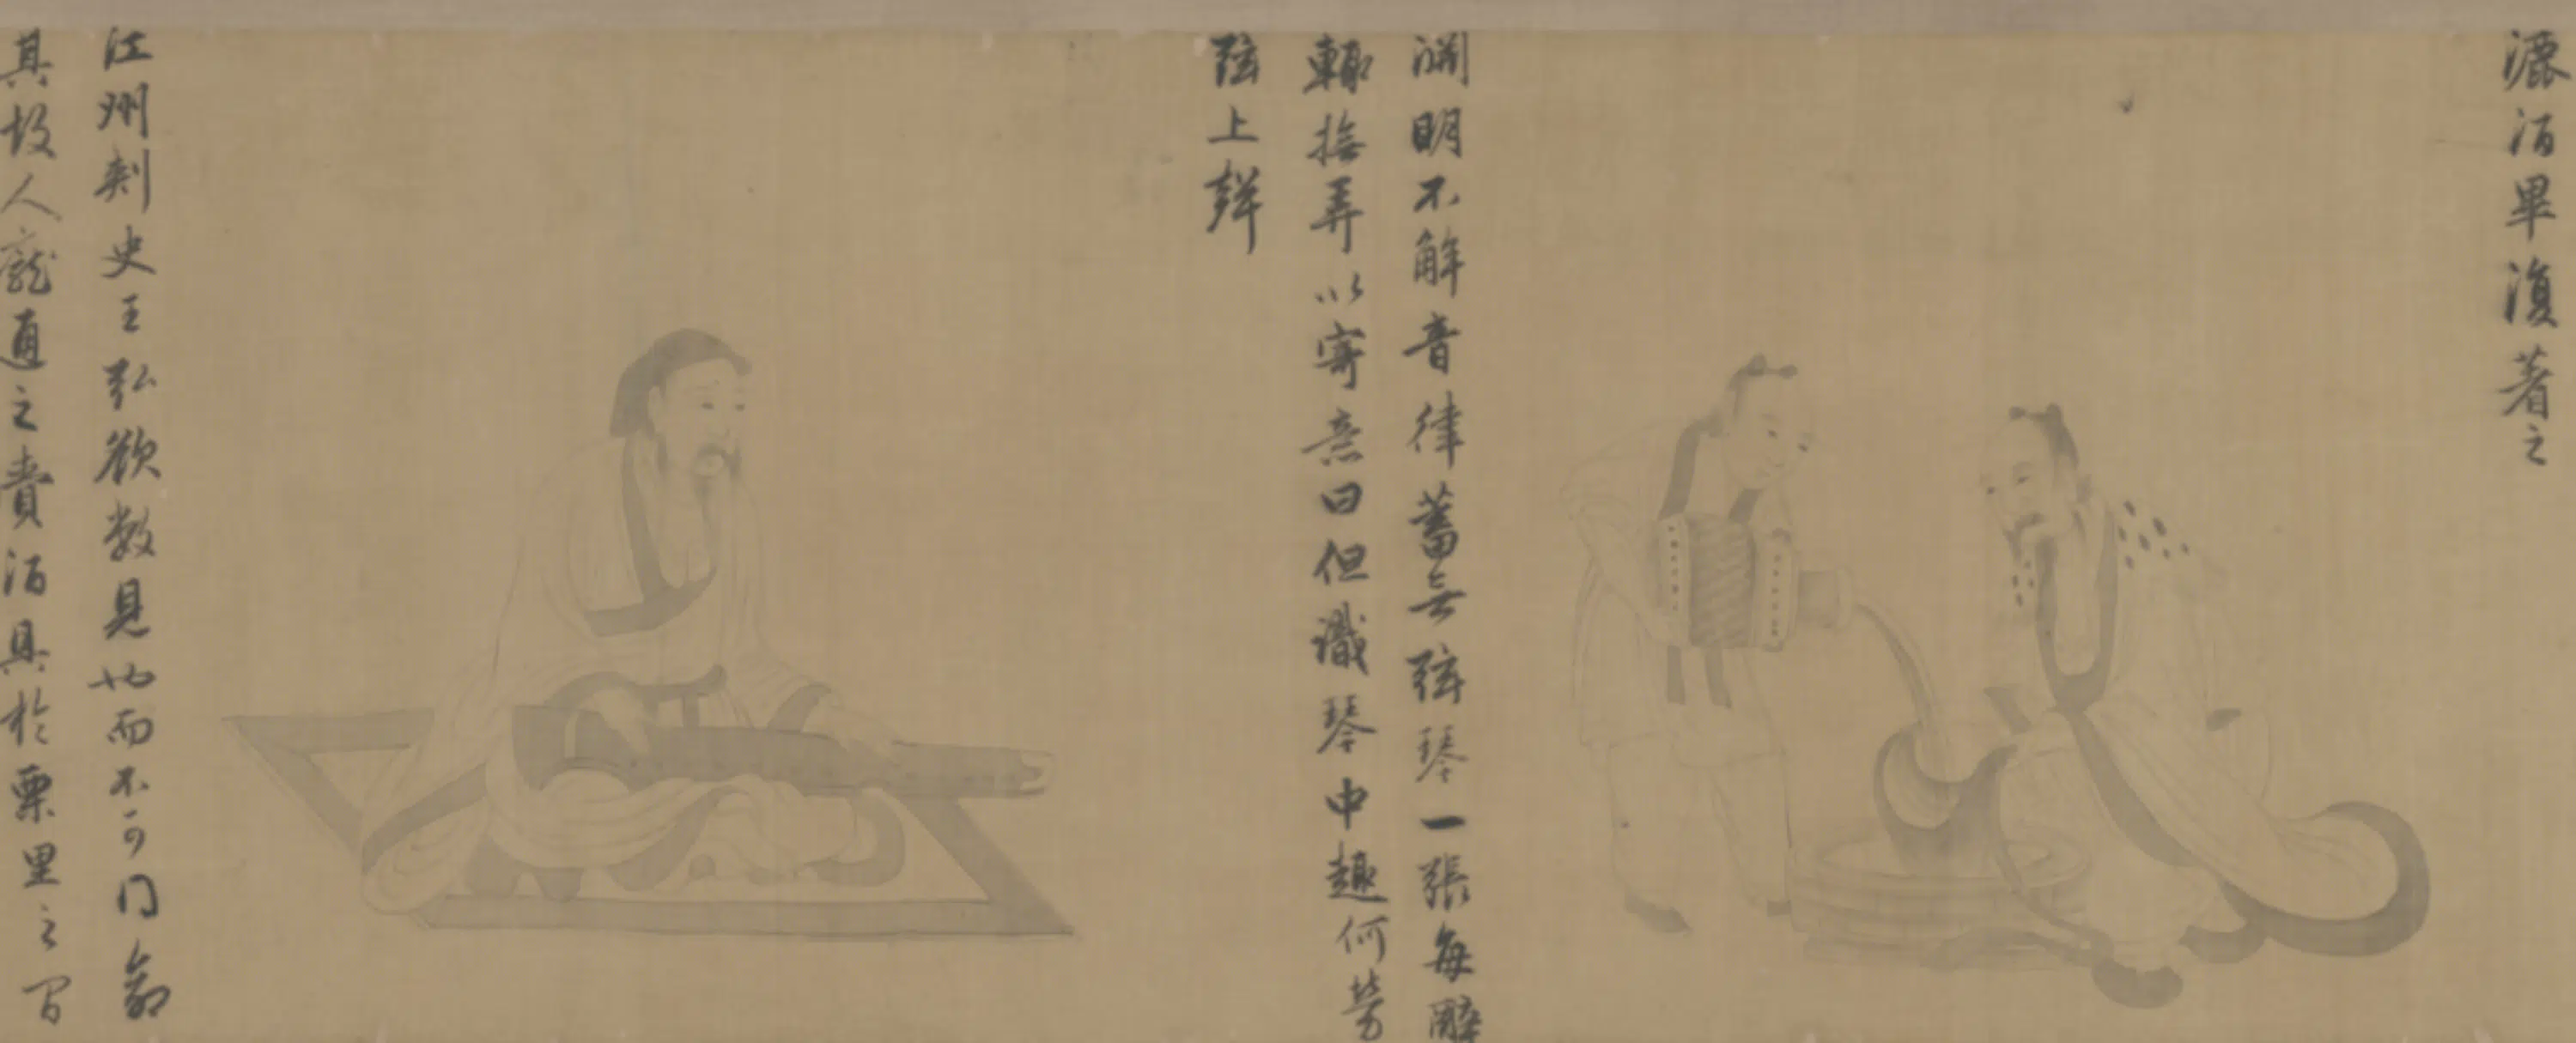 漉酒畢復著之
淵明不解音律蓄無弦琴一張每醉
輒撫弄以寄意曰但識琴中趣何勞
弦上聲
江州刺史王弘欲數見也而不可门命
其故人龐通之賫酒具於栗里之间